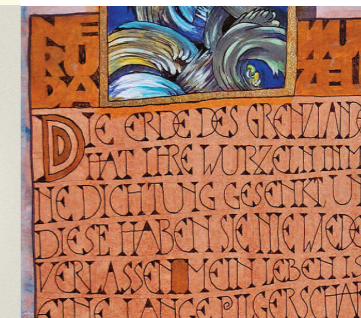 NE
RU
DA
WU
ZE
DIE ERDE DES GRENZLAND
HAT IHRE WURZELN IN M
NE DICHTUNG GESENKT UN
DIESE HABEN SIE NIE WIEDE
VERLASSEN MEIN LEBEN IS
EINE LANGE PILGERSCHA